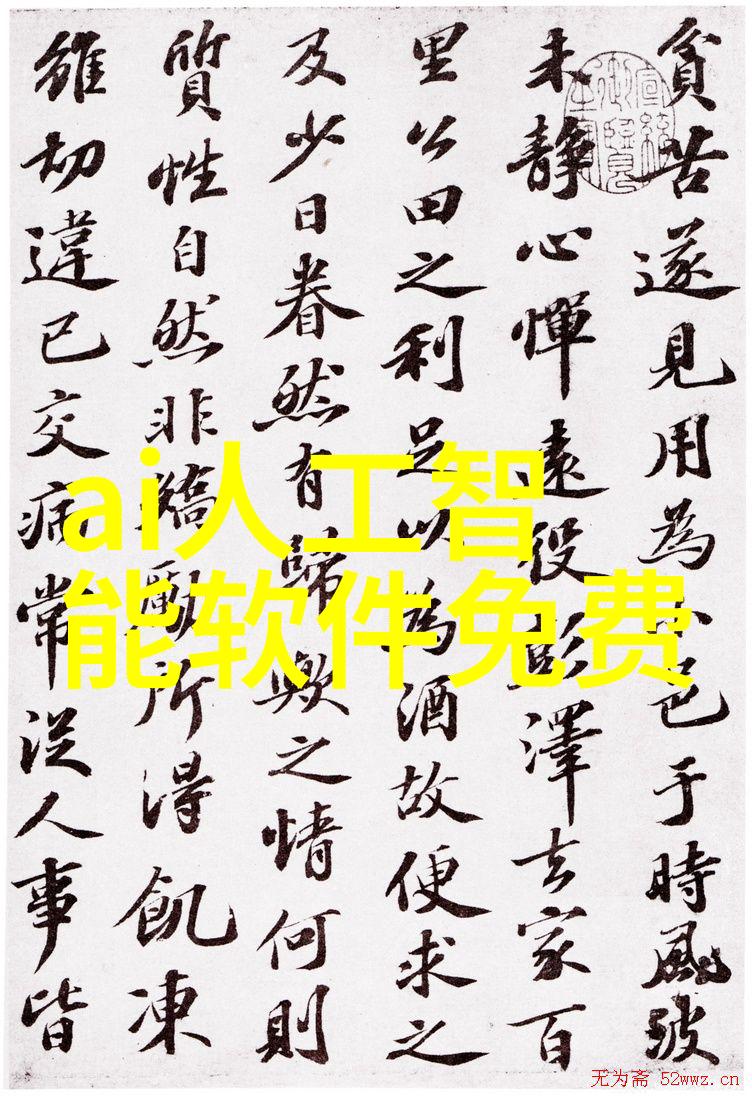 貧苦遂見用為小邑于時風波
未靜心憚遠役彭澤去家百
里公田之利足以為酒故便求之
及少日眷然有歸歟之情何則
質性自然非矯勵所得飢凍
雖切違己交病常從人事皆
ai人工智
能软件免费
无为斋 52wwz.cn